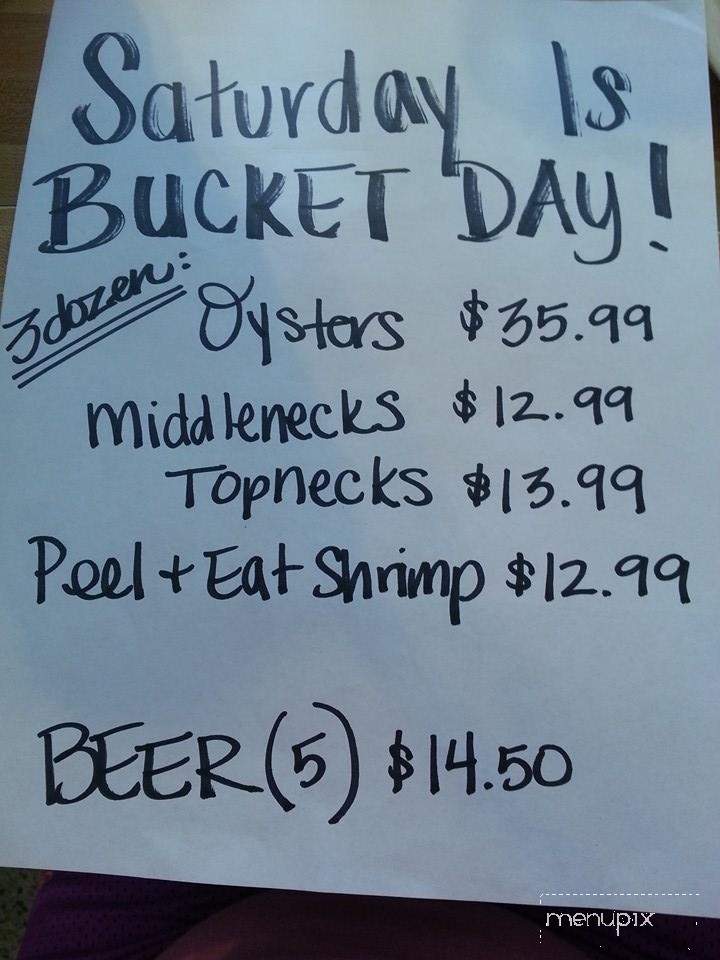 Saturday Is
BUCKET DAY!
3 dozen: Oysters $35.99
Middlenecks $12.99
Topnecks $13.99
Peel + Eat Shrimp $12.99
BEER (5) $14.50
menupix